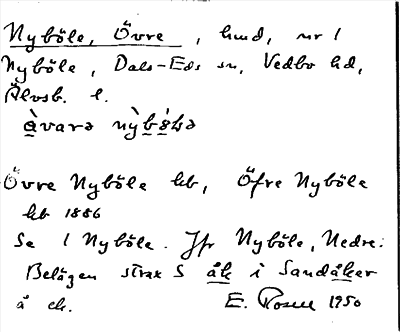 Nyböle, Övre, hmd, nr 1
Nyböle, Dals-Eds sn, Vedbo hd,
Älvsb. l.
Övre Nyböle kb, Öfre Nyböle
kb 1886
Se 1 Nyböle. Jfr Nyböle, Nedre.
Belägen strax S åk i Sandåker
å ek.
E. Rosell 1950